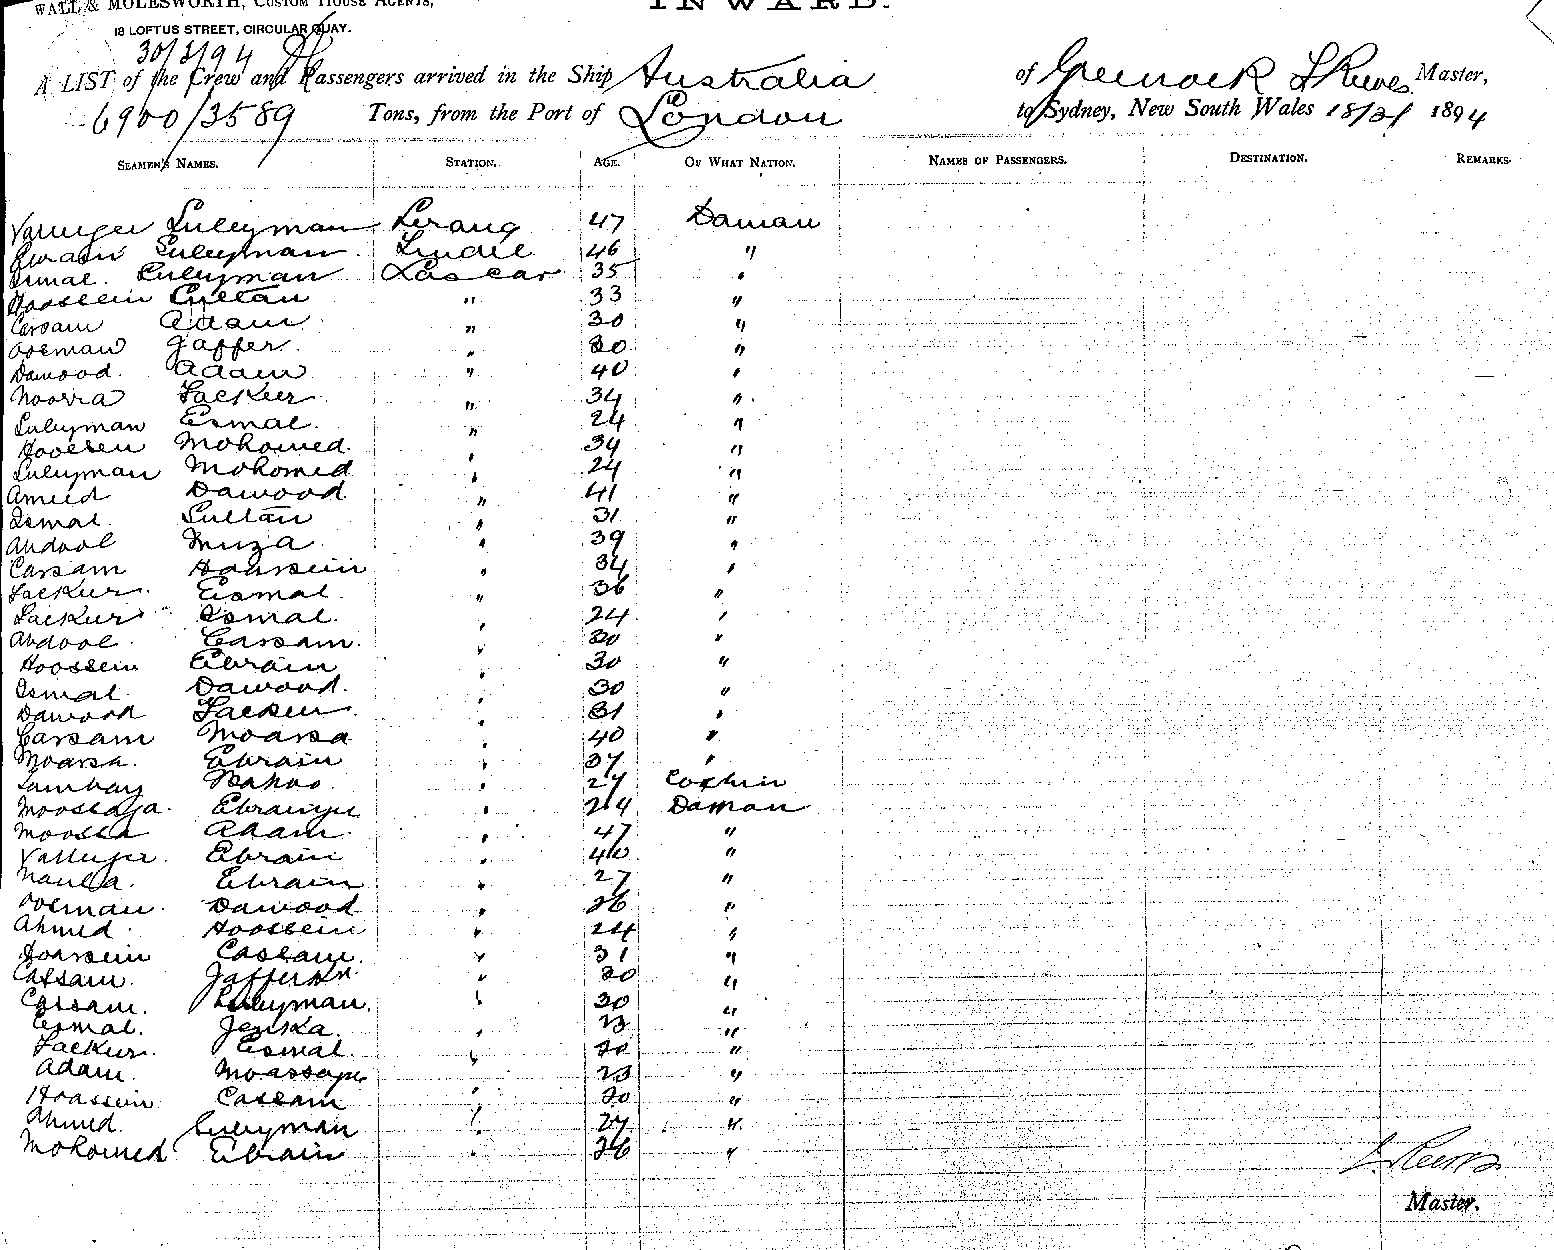 WALL & MOLESWORTH, CUSTOM HOUSE AGENTS,
INWARD.
18 LOFTUS STREET, CIRCULAR QUAY.
30/3/94
A LIST of the Crew and Passengers arrived in the Ship Australia of Greenock Master,
6900/3589 Tons, from the Port of London to Sydney, New South Wales 18/3/ 1894
SEAMEN'S NAMES. STATION. AGE. OF WHAT NATION. NAMES OF PASSENGERS. DESTINATION. REMARKS.
Suleyman Serang 47 Daman
Suleyman 46 "
Esmal. Suleyman Lascar 35 "
Hoossein Sultan " 33 "
Carsam Adam " 30 "
Oseman Jaffer " 30 "
Dawood. Adam " 40 "
Moosa Fackur " 34 "
Suleyman Esmal. " 24 "
Hoosen Mohomed. " 34 "
Suleyman Mohomed " 24 "
Amed Dawood " 41 "
Esmal. Sultan " 31 "
Abdool Muza " 39 "
Carsam Hoarsein " 34 "
Fackur. Esmal. " 36 "
Fackur Esmal. " 24 "
Abdool. Carsam. " 30 "
Hoossein Ebrain " 30 "
Esmal. Dawood. " 30 "
Dawood Fackur " 31 "
Carsam Moarsa " 40 "
Moarsa. Ebrain " 37 "
" 27 Cochin
Ebramjee " 24 Daman
Moossa Adam. " 47 "
Ebrain " 40 "
Ebrain " 27 "
Oseman. Dawood " 26 "
Ahmed. Hoossein " 24 "
Hoarsein Cassam. " 31 "
Cassam. " 30 "
Carsam. Suleyman. " 30 "
Esmal. " 23 "
Fackur. Esmal. " 20 "
Adam. " 23 "
Hoassein Cassam " 20 "
Ahmed. Suleyman " 27 "
Mohomed Ebrain " 26 "
Master.